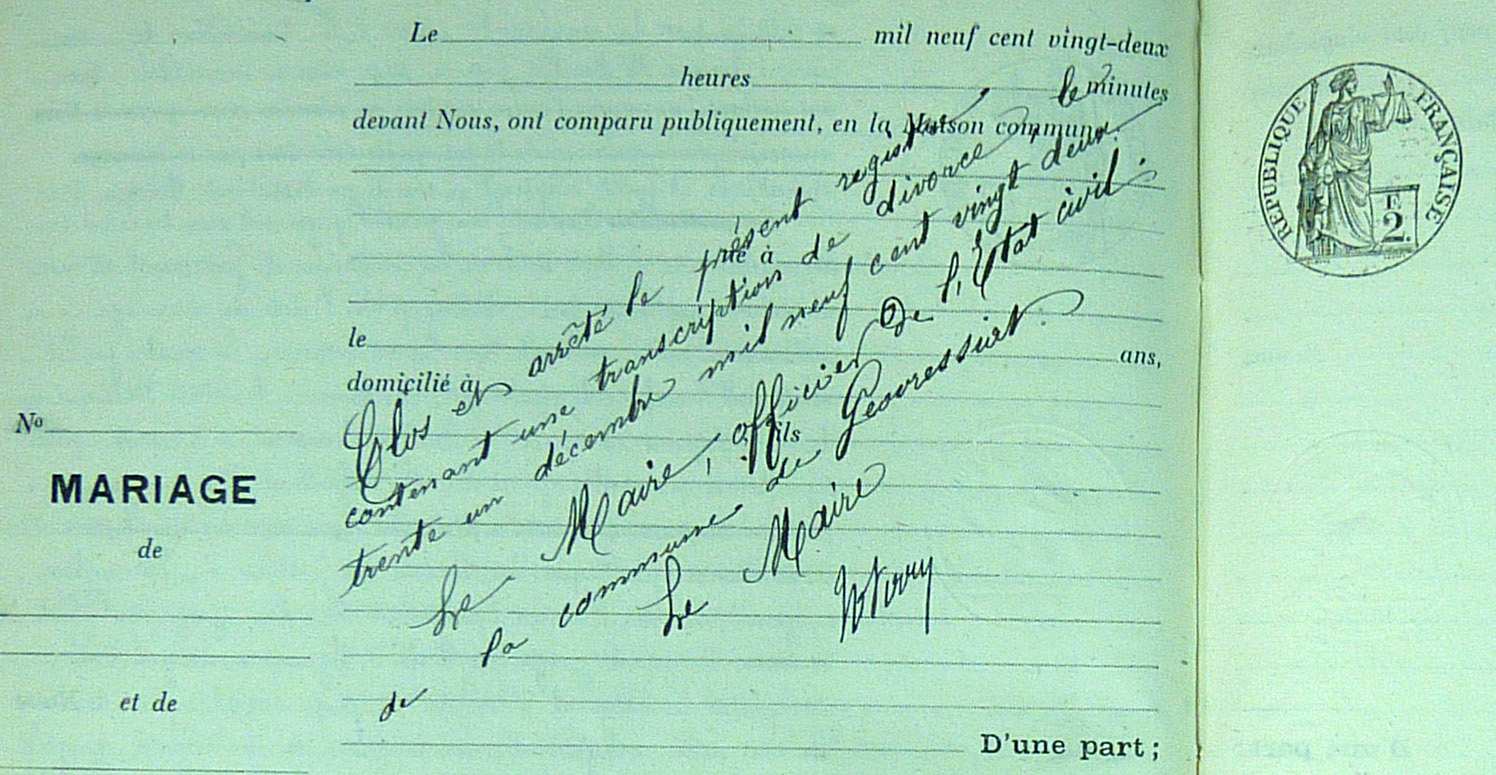 Le mil neuf cent vingt-deux
heures minutes
devant Nous, ont comparu publiquement, en la Maison commune:
né à
le ans,
domicilié à
fils
D'une part ;
No
MARIAGE
de
et de
Clos et arrêté le présent registre
contenant une transcription de divorce, le
trente un décembre mil neuf cent vingt deux.
Le Maire, officier de l'Etat civil.
de la commune de Géovressiat.
Le Maire
REPUBLIQUE FRANÇAISE
E
2.